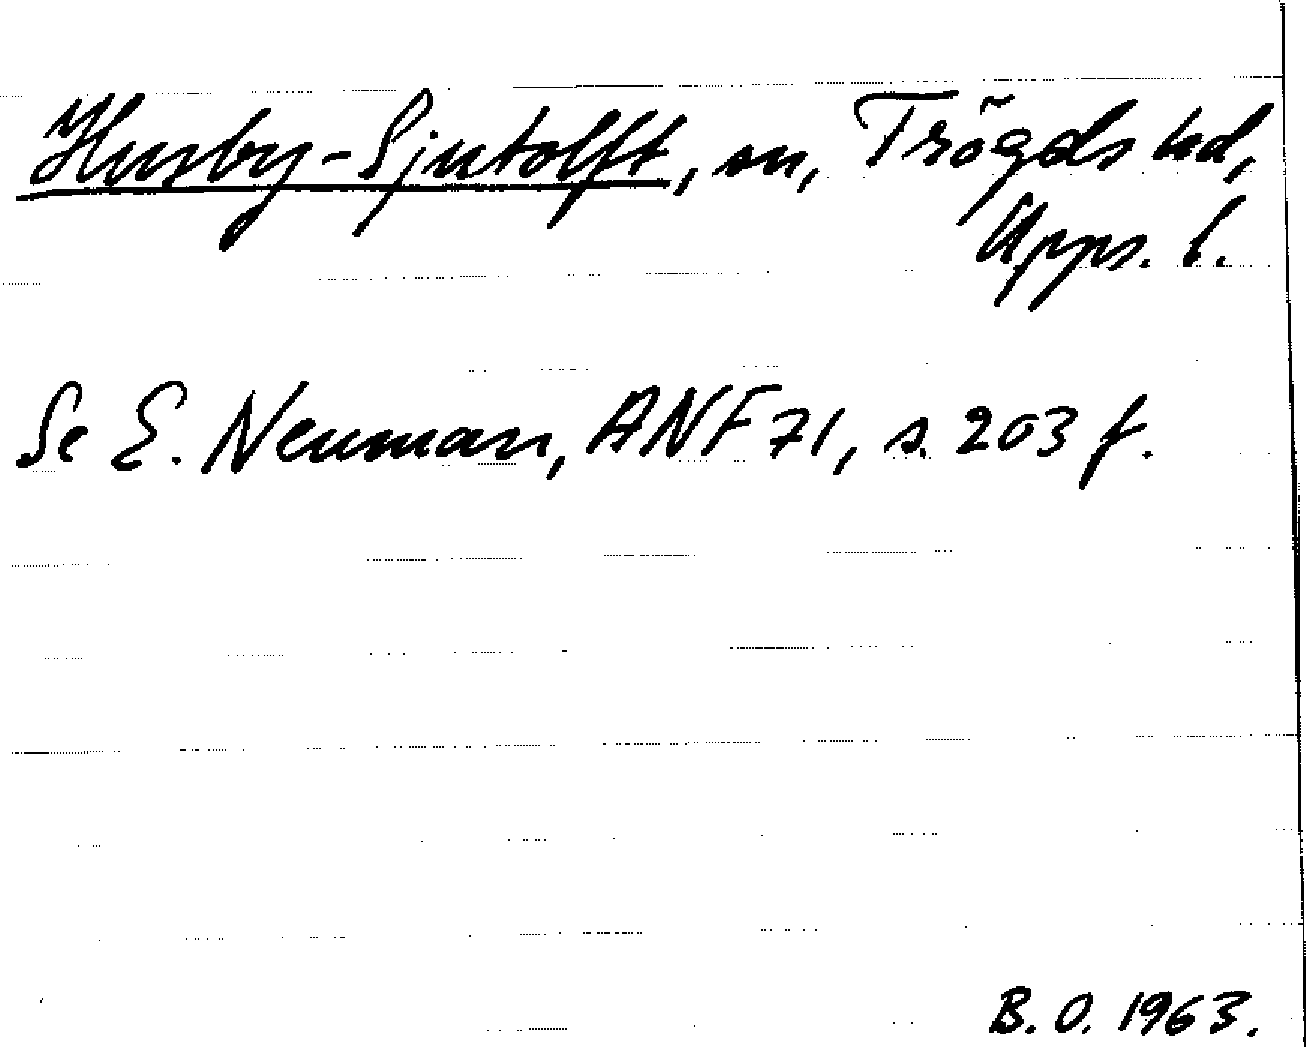 Husby-Sjutolft, sn, Trögds hd,
Upps. l.
Se E. Neuman, ANF 71, s. 203 f.
B. O. 1963.